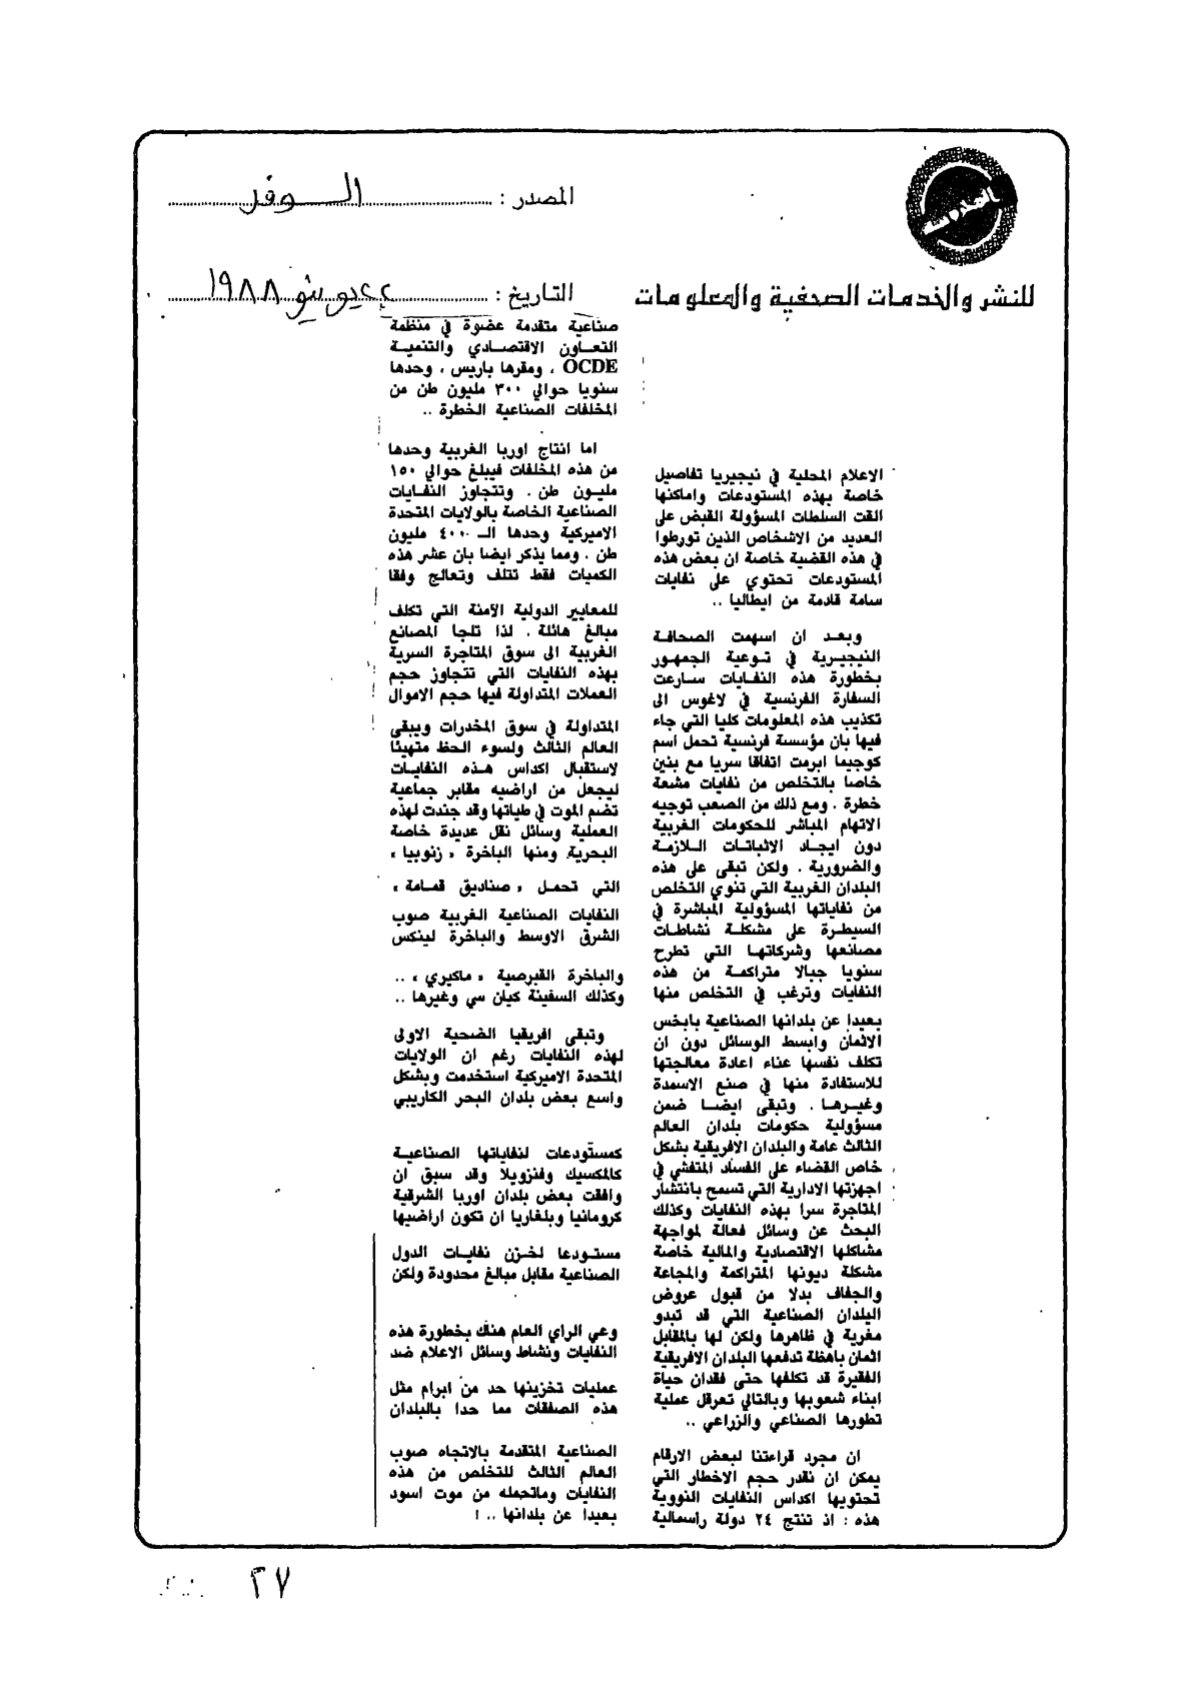 المصدر : الوفد
التاريخ : ٢٢ يونيو ١٩٨٨
للنشر والخدمات الصحفية والمعلومات
الاعلام المحلية في نيجيريا تفاصيل
خاصة بهذه المستودعات واماكنها
القت السلطات المسؤولة القبض على
العديد من الاشخاص الذين تورطوا
في هذه القضية خاصة ان بعض هذه
المستودعات تحتوي على نفايات
سامة قادمة من ايطاليا ..
وبعد ان اسهمت الصحافة
النيجيرية في توعية الجمهور
بخطورة هذه النفايات سارعت
السفارة الفرنسية في لاغوس الى
تكذيب هذه المعلومات كليا التي جاء
فيها بان مؤسسة فرنسية تحمل اسم
كوجيما ابرمت اتفاقا سريا مع بنين
خاصا بالتخلص من نفايات مشعة
خطرة . ومع ذلك من الصعب توجيه
الاتهام المباشر للحكومات الغربية
دون ايجاد الاثباتات اللازمة
والضرورية . ولكن تبقى على هذه
البلدان الغربية التي تنوي التخلص
من نفاياتها المسؤولية المباشرة في
السيطرة على مشكلة نشاطات
مصانعها وشركاتها التي تطرح
سنويا جبالا متراكمة من هذه
النفايات وترغب في التخلص منها
بعيدا عن بلدانها الصناعية بابخس
الاثمان وابسط الوسائل دون ان
تكلف نفسها عناء اعادة معالجتها
للاستفادة منها في صنع الاسمدة
وغيرها . وتبقى ايضا ضمن
مسؤولية حكومات بلدان العالم
الثالث عامة والبلدان الافريقية بشكل
خاص القضاء على الفساد المتفشي في
اجهزتها الادارية التي تسمح بانتشار
المتاجرة سرا بهذه النفايات وكذلك
البحث عن وسائل فعالة لمواجهة
مشاكلها الاقتصادية والمالية خاصة
مشكلة ديونها المتراكمة والمجاعة
والجفاف بدلا من قبول عروض
البلدان الصناعية التي قد تبدو
مغرية في ظاهرها ولكن لها بالمقابل
اثمان باهظة تدفعها البلدان الافريقية
الفقيرة قد تكلفها حتى فقدان حياة
ابناء شعوبها وبالتالي تعرقل عملية
تطورها الصناعي والزراعي ..
ان مجرد قراءتنا لبعض الارقام
يمكن ان نقدر حجم الاخطار التي
تحتويها اكداس النفايات النووية
هذه : اذ تنتج ٢٤ دولة راسمالية
صناعية متقدمة عضوة في منظمة
التعاون الاقتصادي والتنمية
OCDE ، ومقرها باريس ، وحدها
سنويا حوالي ٣٠٠ مليون طن من
المخلفات الصناعية الخطرة ..
اما انتاج اوربا الغربية وحدها
من هذه المخلفات فيبلغ حوالي ١٥٠
مليون طن . وتتجاوز النفايات
الصناعية الخاصة بالولايات المتحدة
الاميركية وحدها الـ ٤٠٠ مليون
طن . ومما يذكر ايضا بان عشر هذه
الكميات فقط تتلف وتعالج وفقا
للمعايير الدولية الآمنة التي تكلف
مبالغ هائلة . لذا تلجا المصانع
الغربية الى سوق المتاجرة السرية
بهذه النفايات التي تتجاوز حجم
العملات المتداولة فيها حجم الاموال
المتداولة في سوق المخدرات ويبقى
العالم الثالث ولسوء الحظ متهيئا
لاستقبال اكداس هذه النفايات
ليجعل من اراضيه مقابر جماعية
تضم الموت في طياتها وقد جندت لهذه
العملية وسائل نقل عديدة خاصة
البحرية ومنها الباخرة « زنوبيا »
التي تحمل « صناديق قمامة »
النفايات الصناعية الغربية صوب
الشرق الاوسط والباخرة لينكس
والباخرة القبرصية « ماكيري » ..
وكذلك السفينة كيان سي وغيرها ..
وتبقى افريقيا الضحية الاولى
لهذه النفايات رغم ان الولايات
المتحدة الاميركية استخدمت وبشكل
واسع بعض بلدان البحر الكاريبي
كمستودعات لنفاياتها الصناعية
كالمكسيك وفنزويلا وقد سبق ان
وافقت بعض بلدان اوربا الشرقية
كرومانيا وبلغاريا ان تكون اراضيها
مستودعا لخزن نفايات الدول
الصناعية مقابل مبالغ محدودة ولكن
وعي الراي العام هناك بخطورة هذه
النفايات ونشاط وسائل الاعلام ضد
عمليات تخزينها حد من ابرام مثل
هذه الصفقات مما حدا بالبلدان
الصناعية المتقدمة بالاتجاه صوب
العالم الثالث للتخلص من هذه
النفايات وماتحمله من موت اسود
بعيدا عن بلدانها .. !
٢٧